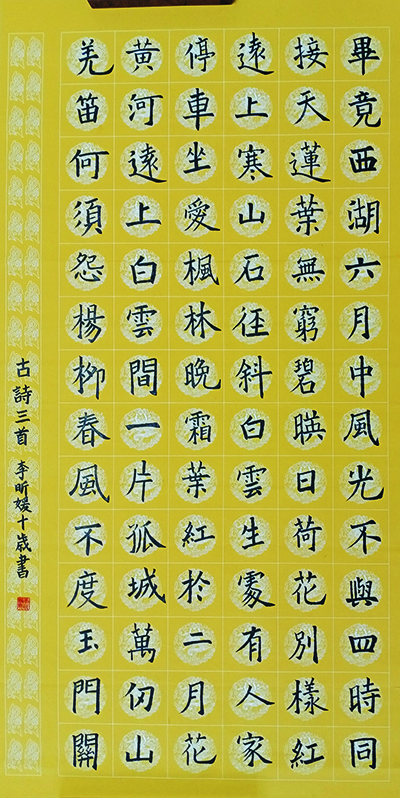 畢竟西湖六月中風光不與四時同
接天蓮葉無窮碧暎日荷花別樣紅
遠上寒山石徑斜白雲生處有人家
停車坐愛楓林晚霜葉紅於二月花
黄河遠上白雲間一片孤城萬仞山
羌笛何須怨楊柳春風不度玉門關
古詩三首 李昕媛十歲書